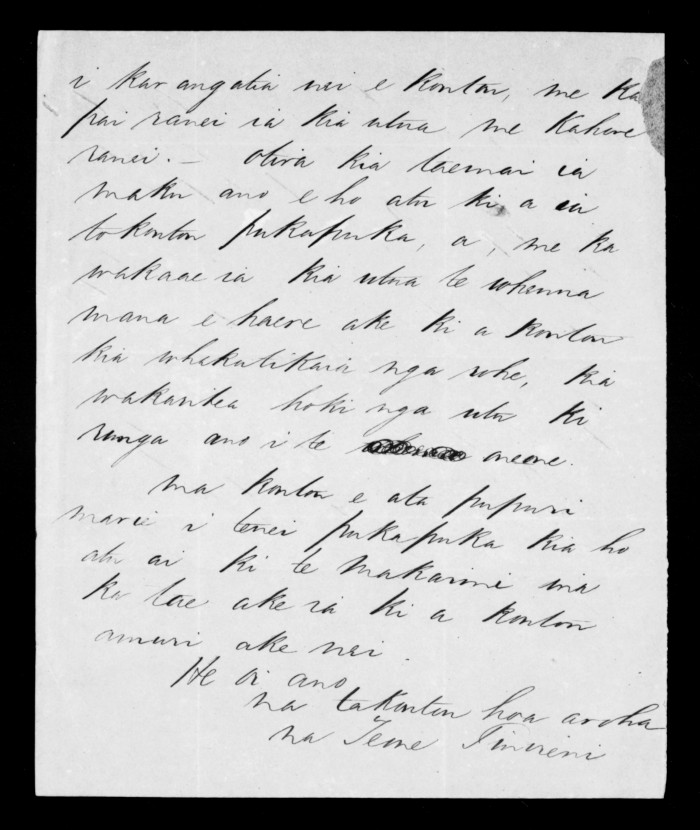 i karangatia nei e koutou, me ka
pai ranei ia kia utua me Kahore
ranei. — Otira kia taemai ia
maku ano e ho atu ki a ia
to koutou pukapuka, a, me ka
wakaae ia kia utua te whenua
mana e haere ake ki a koutou
kia whakatikaia nga rohe, kia
wakaritea hoki nga utu ki
runga ano i te oneone.
ma koutou e ata pupuri
marie i tenei pukapuka kia ho
atu ai ki te Makarini ina
ka tae ake ia ki a koutou
amuri ake nei.
He oi ano
na ta koutou hoa aroha
na Teone